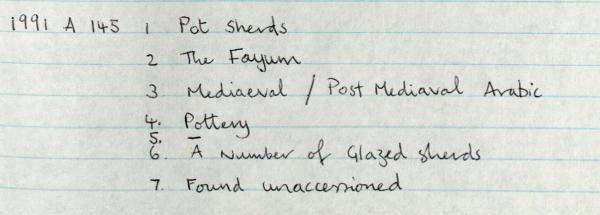 1991 A 145 1 Pot sherds
2 The Fayum
3 Mediaeval / Post Mediaval Arabic
4. Pottery
5. –
6. A Number of Glazed sherds
7. Found unaccessioned